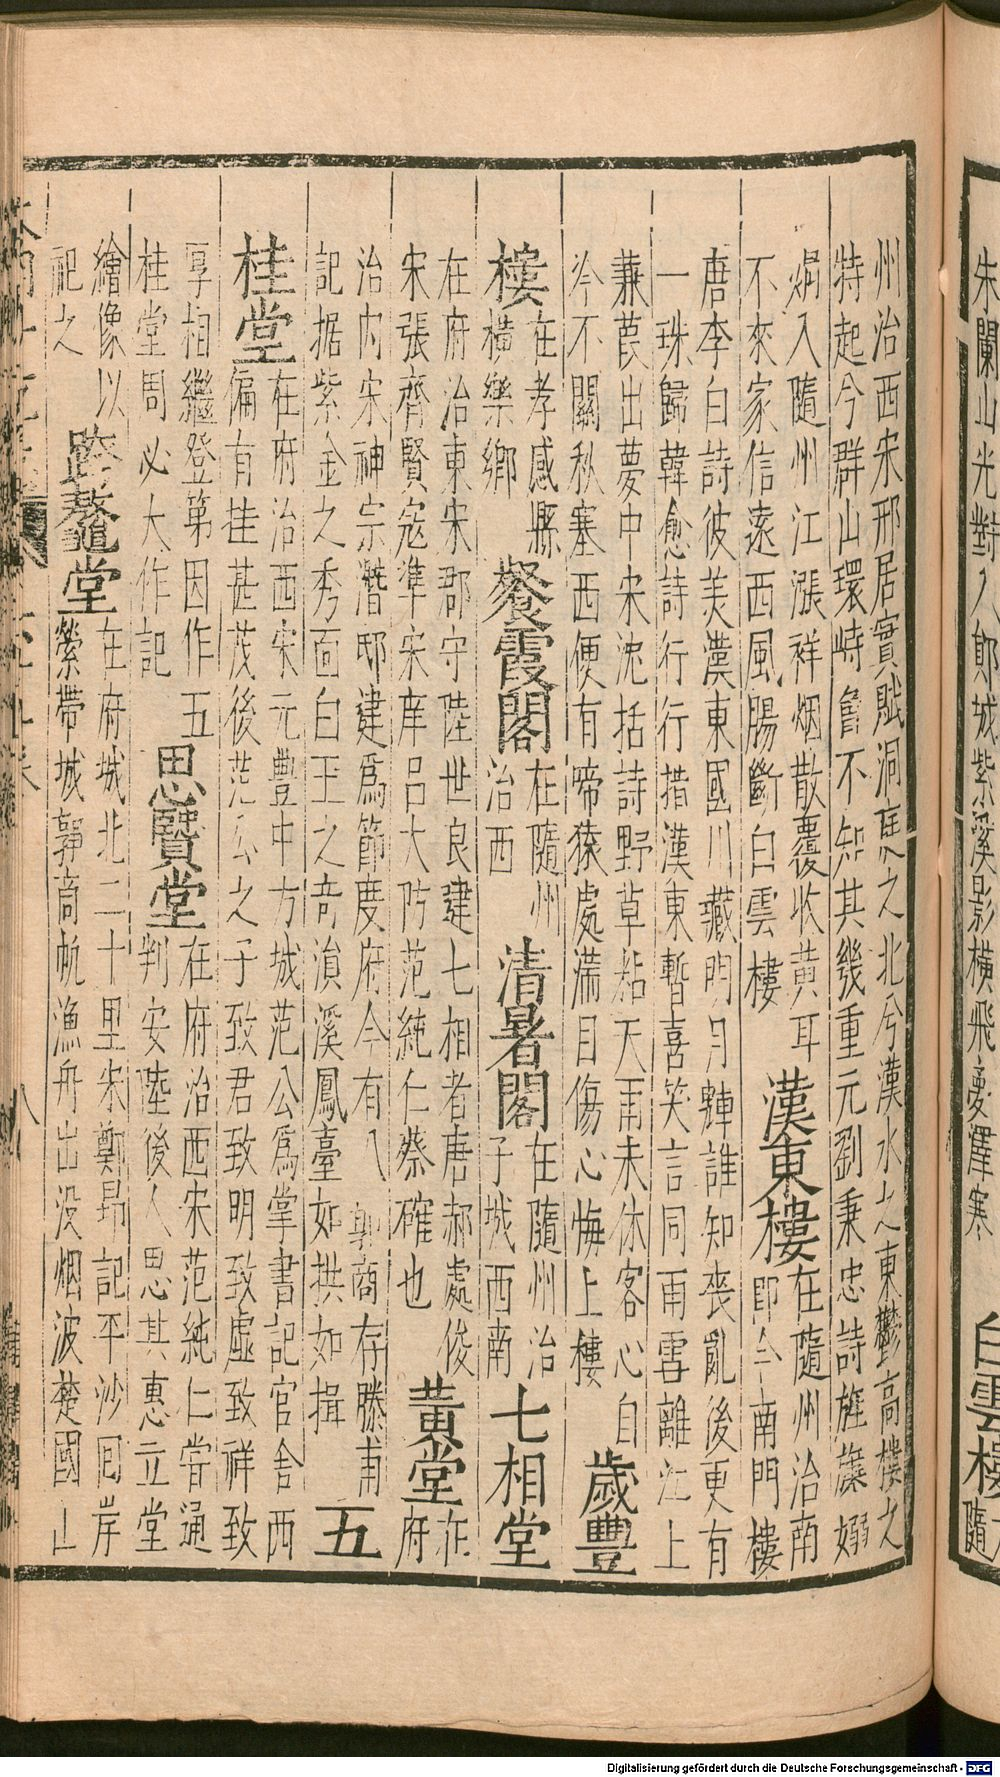 朱闌山光對入郧城紫溪影橫飛夢澤寒
白雲樓
隨
州治西宋邢居實賦洞庭之北兮漢水之東鬱高樓之
特起今群山環峙詹不知其幾重元劉秉忠詩旌旗嫋
嫋入隨州江漲祥烟散覆收黄耳
不來家信遠西風腸斷白雲樓
漢東樓
在隨州治南
即今南門樓
唐李白詩彼美漢東國川藏明月輝誰知喪亂後更有
一珠歸韓愈詩行行指漢東暫喜笑言同雨雪離江上
蒹葭出夢中宋沈括詩野草粘天雨未休客心自
冷不關秋塞西便有啼猿處滿目傷心悔上樓
歲豐
樓
在孝感縣
橫樂鄉
餐霞閣
在隨州
治西
清暑閣
在隨州治
子城西南
七相堂
在府治東宋郡守陸世良建七相者唐郝處俊
宋張齊賢寇準宋庠呂大防范純仁蔡確也
黄堂
在
府
治内宋神宗潛邸建爲節度府今有八
記据紫金之秀面白玉之奇溳溪鳳臺如拱如揖
存滕甫
五
桂堂
在府治西宋元豐中方城范公爲掌書記官舍西
偏有桂甚茂後范公之子致君致明致虛致祥致
厚相繼登第因作五
桂堂周必大作記
思賢堂
在府治西宋范純仁嘗通
判安陸後人思其惠立堂
繪像以
祀之
跨鼇堂
在府城北二十里宋鄭昂記平沙囘岸
縈帶城郭商帆漁舟出没烟波楚國山
Digitalisierung gefördert durch die Deutsche Forschungsgemeinschaft - DFG